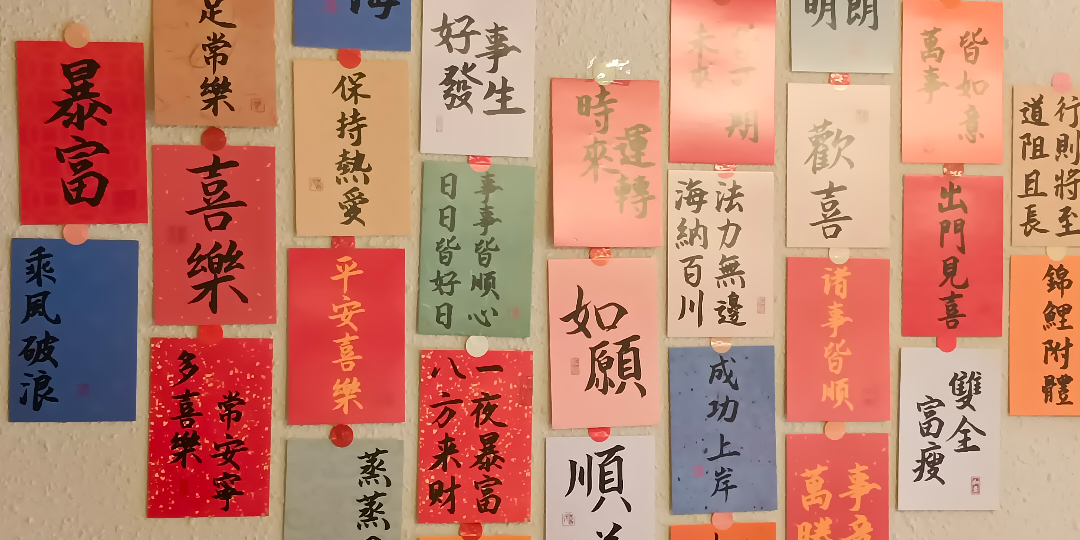 暴富
乘風破浪
足常樂
喜樂
多喜樂
常安寧
海
保持熱愛
平安喜樂
蒸蒸
好事
發生
事事皆順心
日日皆好日
一夜暴富
八方来财
時來
運轉
如願
順
未來
期
法力無邊
海納百川
成功上岸
明朗
歡喜
诸事皆顺
事
萬勝
萬事
皆如意
出門見喜
富瘦
雙全
道阻且長
行則將至
錦鯉附體